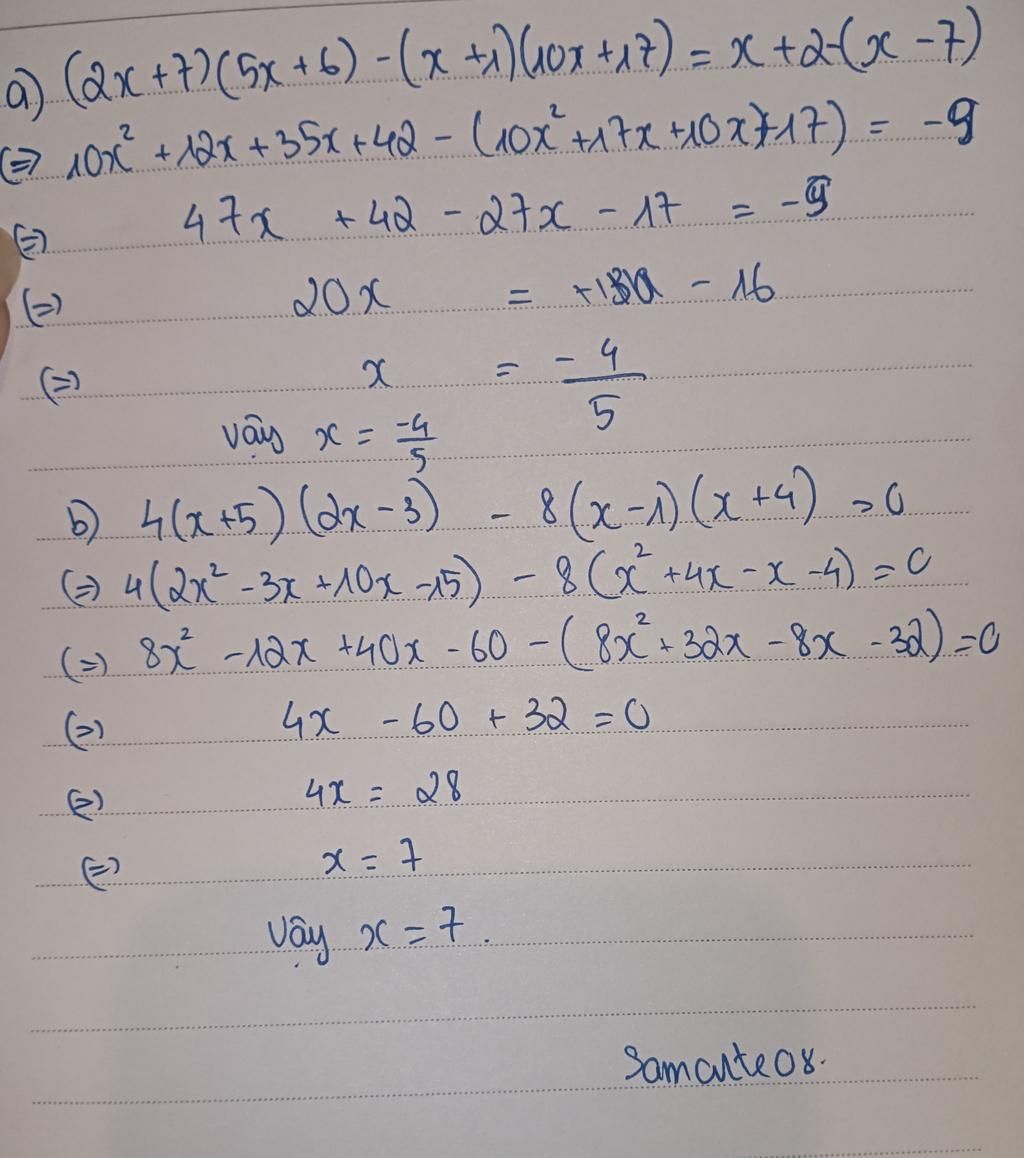 a) (2x+7)(5x+6) - (x+1)(10x+17) = x+2-(x-7)
(=) 10x² + 12x + 35x + 42 - (10x² + 17x + 10x + 17) = -9
(=) 47x + 42 - 27x - 17 = -9
(=) 20x = - 16
(=) x = -4/5
Vậy x = -4/5
b) 4(x+5)(2x-3) - 8(x-1)(x+4) = 0
(=) 4(2x² - 3x + 10x - 15) - 8(x² + 4x - x - 4) = 0
(=) 8x² - 12x + 40x - 60 - (8x² + 32x - 8x - 32) = 0
(=) 4x - 60 + 32 = 0
(=) 4x = 28
(=) x = 7
Vậy x = 7.